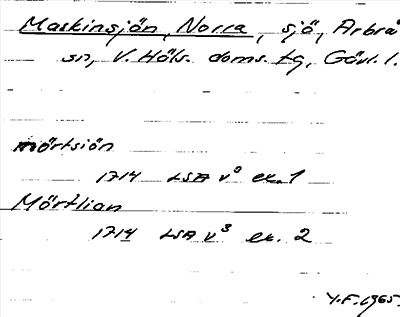 Maskinsjön, Norra, sjö, Arbrå
sn, V. Häls. doms. tg, Gävl. l.
Mörtsiön
1714 LSA v⁰ ex. 1
Mörtlian
1714 LSA v³ ex. 2
Y.F. 1965.